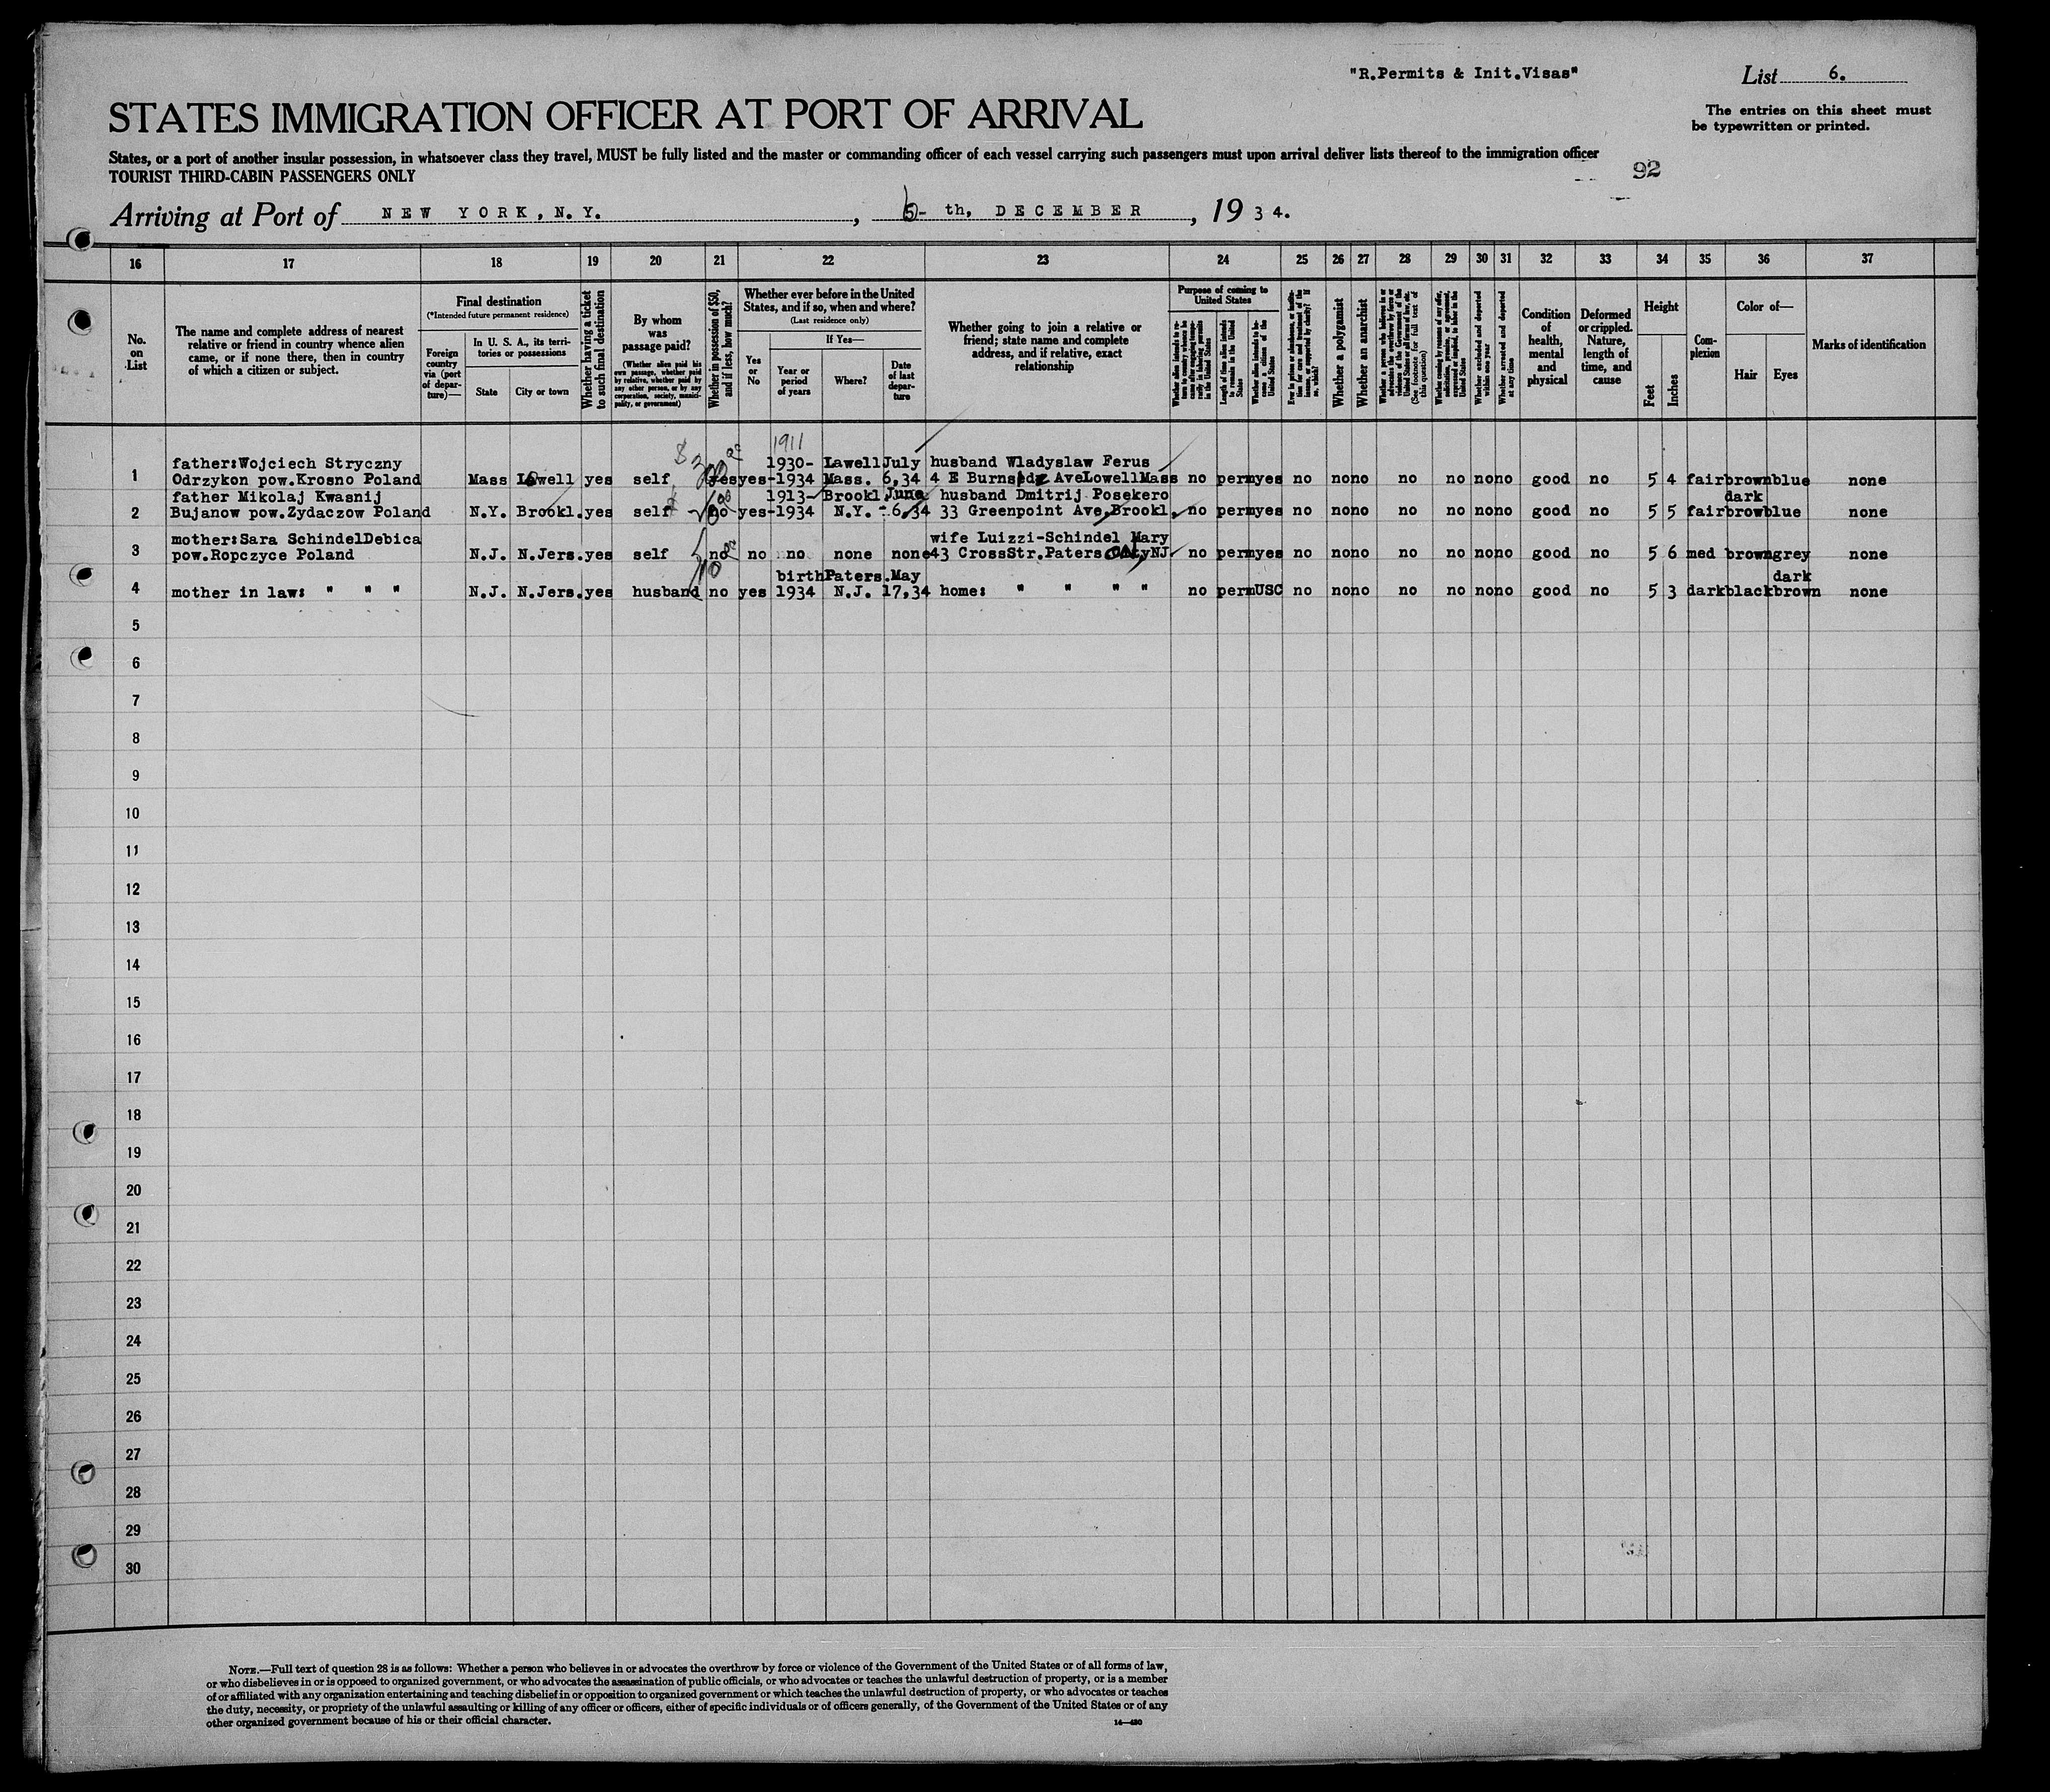 "R.Permits & Init.Visas"
List 6.
STATES IMMIGRATION OFFICER AT PORT OF ARRIVAL
The entries on this sheet must
be typewritten or printed.
States, or a port of another insular possession, in whatsoever class they travel, MUST be fully listed and the master or commanding officer of each vessel carrying such passengers must upon arrival deliver lists thereof to the immigration officer
TOURIST THIRD-CABIN PASSENGERS ONLY
92
Arriving at Port of NEW YORK, N.Y. , th, DECEMBER , 19 34.
16 17 18 19 20 21 22 23 24 25 26 27 28 29 30 31 32 33 34 35 36 37
No.
on
List
The name and complete address of nearest
relative or friend in country whence alien
came, or if none there, then in country
of which a citizen or subject.
Final destination
(*Intended future permanent residence)
Foreign
country
via (port
of depar-
ture)—
In U. S. A., its terri-
tories or possessions
State
City or town
Whether having a ticket
to such final destination
By whom
was
passage paid?
(Whether alien paid his
own passage, whether paid
by relative, whether paid by
any other person, or by any
corporation, society, munici-
pality, or government)
Whether in possession of $50,
and if less, how much?
Whether ever before in the United
States, and if so, when and where?
(Last residence only)
Yes
or
No
If Yes—
Year or
period
of years
Where?
Date
of last
depar-
ture
Whether going to join a relative or
friend; state name and complete
address, and if relative, exact
relationship
Purpose of coming to
United States
Length of time alien intends
to remain in the United
States
Whether alien intends to be-
come a citizen of the
United States
Whether a polygamist
Whether an anarchist
(See footnote for full text of
this question)
Whether excluded and deported
within one year
Whether arrested and deported
at any time
Condition
of
health,
mental
and
physical
Deformed
or crippled.
Nature,
length of
time, and
cause
Height
Feet
Inches
Com-
plexion
Color of—
Hair
Eyes
Marks of identification
1911
father:Wojciech Stryczny 1930- Lawell July husband Wladyslaw Ferus
1 Odrzykon pow.Krosno Poland Mass Lowell yes self yes yes-1934 Mass. 6,34 4 E Ave Lowell Mass no perm yes no no no no no no no good no 5 4 fair brown blue none
father Mikolaj Kwasnij 1913- Brookl. June husband Dmitrij Posekero dark
2 Bujanow pow.Zydaczow Poland N.Y. Brookl. yes self no yes-1934 N.Y. 6,34 33 Greenpoint Ave,Brookl. no perm yes no no no no no no no good no 5 5 fair brow blue none
mother:Sara Schindel Debica wife Luizzi-Schindel Mary
3 pow.Ropczyce Poland N.J. N.Jers. yes self no no no none none 43 CrossStr.Paters NJ. no perm yes no no no no no no no good no 5 6 med brown grey none
birth Paters. May dark
4 mother in law: " " " N.J. N.Jers. yes husband no yes 1934 N.J. 17,34 home: " " " " no perm USC no no no no no no no good no 5 3 dark black brown none
5
6
7
8
9
10
11
12
13
14
15
16
17
18
19
20
21
22
23
24
25
26
27
28
29
30
NOTE.—Full text of question 28 is as follows: Whether a person who believes in or advocates the overthrow by force or violence of the Government of the United States or of all forms of law,
or who disbelieves in or is opposed to organized government, or who advocates the assassination of public officials, or who advocates or teaches the unlawful destruction of property, or is a member
of or affiliated with any organization entertaining and teaching disbelief in or opposition to organized government or which teaches the unlawful destruction of property, or who advocates or teaches
the duty, necessity, or propriety of the unlawful assaulting or killing of any officer or officers, either of specific individuals or of officers generally, of the Government of the United States or of any
other organized government because of his or their official character.